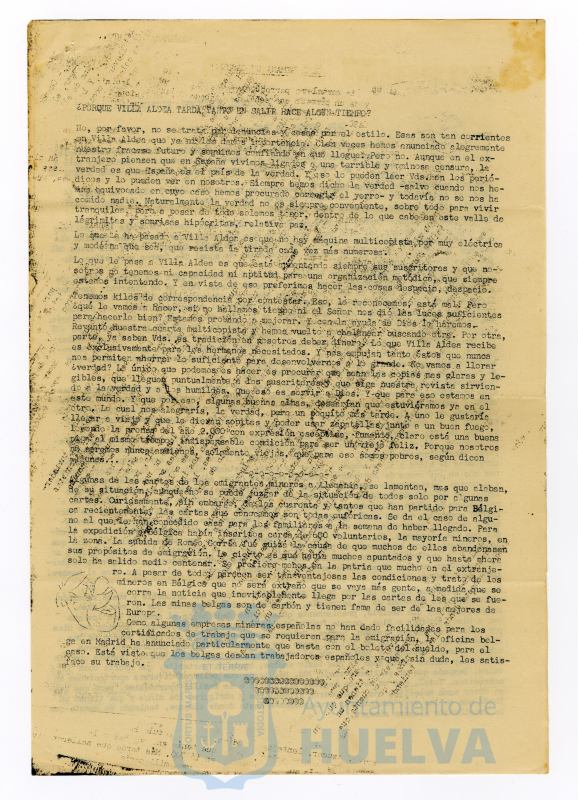 ¿PORQUE VILLA ALDEA TARDA TANTO EN SALIR HACE ALGUN TIEMPO?
No, por favor, no se trata por denuncias y cosas por el estilo. Esas son tan corrientes
en Villa Aldea que ya ni les damos importancia. Cien veces hemos anunciado alegremente
nuestro fracaso futuro y seguimos confiando en que llegue. Pero no. Aunque en el ex-
tranjero piensen que en España vivimos ligados y una terrible y ominosa censura, la
verdad es que España es el país de la verdad. Y eso lo pueden leer Vds. en los perió-
dicos y lo pueden ver en nosotros. Siempre hemos dicho la verdad -salvo cuando nos he-
mos equivocado en cuyo caso hemos procurado corregir el yerro- y todavía no se nos ha
comido nadie. Naturalmente la verdad no es siempre conveniente, sobre todo para vivir
tranquilos, pero a pesar de todo solemos tener, dentro de lo que cabe en este valle de
lágrimitas y sonrisas hipócritas, relativa paz.
Lo que le ha pasado a Villa Aldea es que no hay máquina multicopista por muy eléctrica
y moderna que sea, que resista la tirada cada vez más numerosa.
Lo que le pasa a Villa Aldea es que está aumentando siempre sus suscritores y que no-
sotros no tenemos ni capacidad ni aptitud para una organización metódica, que siempre
estamos intentando. Y en vista de eso preferimos hacer las cosas despacio, despacio.
Tenemos kilos de correspondencia por contestar. Eso, lo reconocemos, está mal. Pero
¿qué le vamos a hacer, si no hallamos tiempo ni el Señor nos dió las luces suficientes
para hacerlo bien? Estamos probando a mejorar. Y con la ayuda de Dios lo haremos.
Reventó nuestra cuarta multicopista y hemos vuelto a chalanear buscando otra. Por otra
parte, ya saben Vds. es tradición en nosotros deber dinero. Lo que Villa Aldea recibe
es exclusivamente para los hermanos necesitados. Y nos empujan tanto éstos que nunca
nos permiten ahorrar lo suficiente para desenvolvernos a lo grande. No vamos a llorar
¿verdad? Lo único que podemos es hacer es procurar que sean las copias mas claras y le-
gibles, que lleguen puntualmente a los suscritores y que siga nuestra revista sirvien-
do a la verdad y a los humildes. Que eso es servir a Dios. Y que para eso estamos en
este mundo. Y que por eso, algunas buenas almas, desearían que estuviéramos ya en el
otro. Lo cual nos alegraría, la verdad, pero un poquito más tarde. A uno le gustaría
llegar a viejo y que le dieran sopitas y poder usar zapatillas junto a un buen fuego,
leyendo la prensa del año 2.000 con expresión escéptica. Fumando, claro está una buena
pipa al mismo tiempo, indispensable condición para ser un viejo feliz. Porque nosotros
no seremos nunca ancianos, solamente viejos, que para eso somos pobres, según dicen
algunos...
Algunas de las cartas de los emigrantes mineros a Alemania, se lamentan, mas que alaban,
de su situación, aunque no se puede juzgar de la situación de todos solo por algunas
cartas. Curiosamente, sin embargo, de los cuarenta y tantos que han partido para Bélgi-
ca recientemente, las cartas que conocemos son todas eufóricas. Se da el caso de algu-
no al que le han concedido casa para los familiares a la semana de haber llegado. Para
la expedición a Bélgica habían inscritos cerca de 600 voluntarios, la mayoría mineros, en
la zona. La subida de Romeo Cortés fué quizá la causa de que muchos de ellos abandonasen
sus propósitos de emigración. Lo cierto es que había muchos apuntados y que hasta ahora
solo ha salido medio centenar. Se prefiere menos en la patria que mucho en el extranje-
ro. A pesar de todo parecen ser tan ventajosas las condiciones y trato de los
mineros en Bélgica que no será extraño que se vaya más gente, a medida que se
corra la noticia que inevitablemente llega por las cartas de los que se fue-
ron. Las minas belgas son de carbón y tienen fama de ser de las mejores de
Europa.
Como algunas empresas mineras españolas no han dado facilidades para los
certificados de trabajo que se requieren para la emigración, la oficina bel-
ga en Madrid ha anunciado particularmente que basta con el boleto del sueldo, para el
caso. Está visto que los belgas desean trabajadores españoles y que, sin duda, les satis-
face su trabajo.
Ayuntamiento de
HUELVA